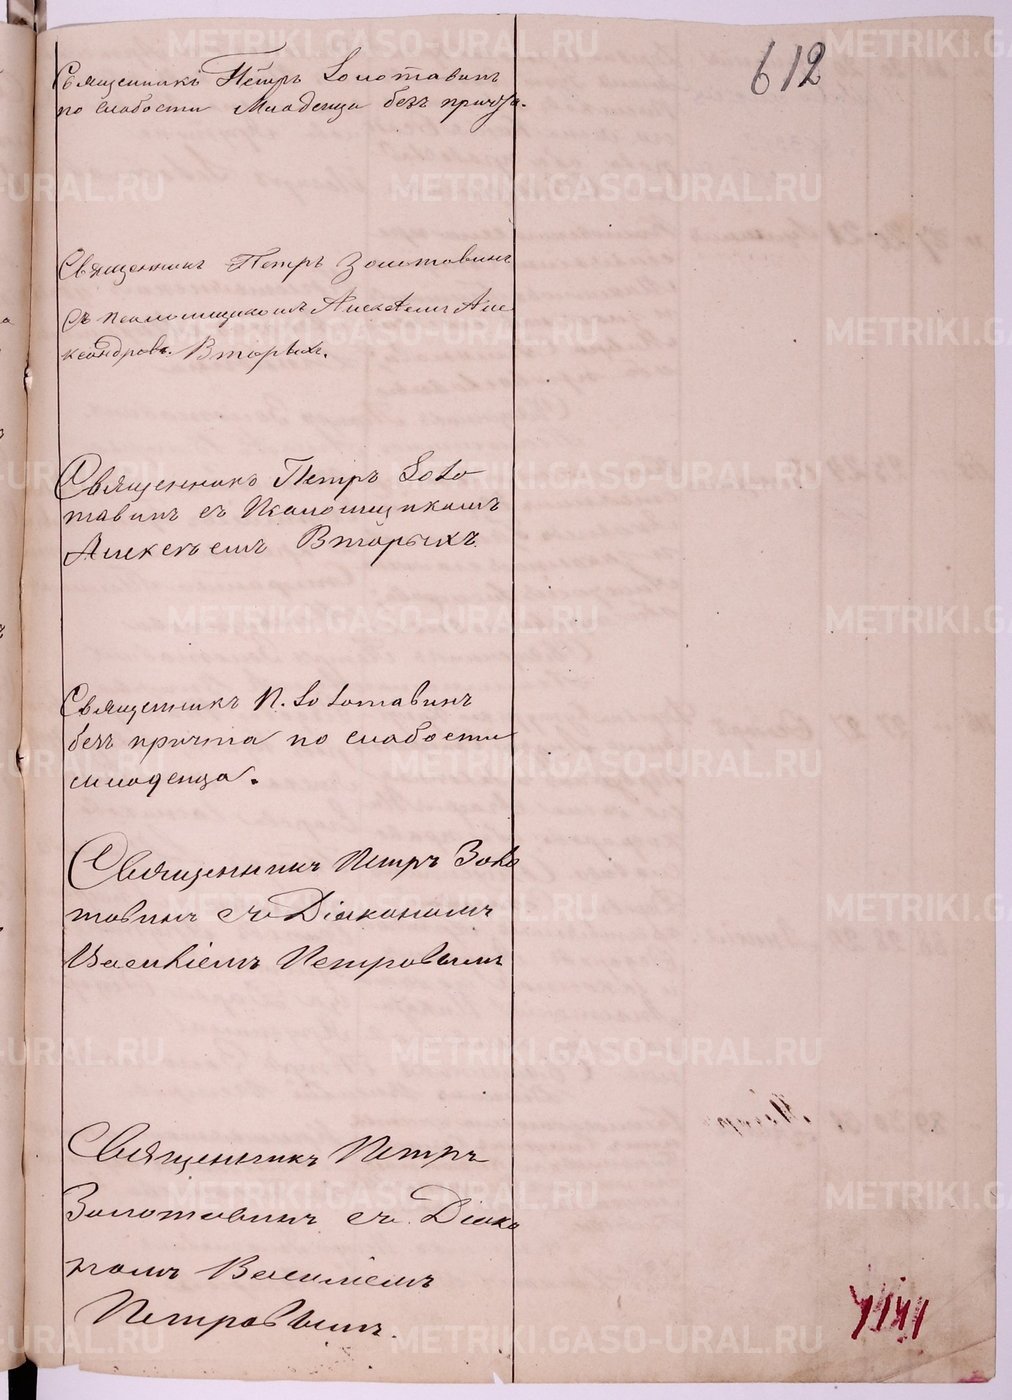 612
Священникъ Петръ Золотавинъ
по слабости Младенца безъ причта.
Священникъ Петръ Золотавинъ
съ псаломщикомъ Алексѣемъ Але
ксандров. Вторыхъ.
Священникъ Петръ Золо
тавинъ съ Псаломщикомъ
Алексѣемъ Вторыхъ
Священникъ П. Золотавинъ
безъ причта по слабости
младенца.
Священникъ Петръ Золо
тавинъ съ Діакономъ
Василіемъ Петровымъ
Священникъ Петръ
Золотавинъ съ Діако
номъ Василіемъ
Петровымъ.
METRIKI.GASO-URAL.RU